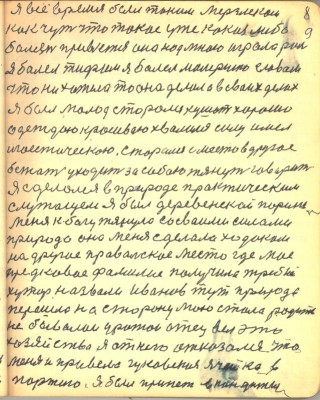 Я всё время был таким мерзлеком 8
как чуть что такое уже какая либо 9
болезнь привяжется она надмною играла рол
я болел тифом я болел малярию словом
что ни хотила то она делала в своих делах
я был молод сторона кушает хорошо
одеждою красиваю хвалился силу имел
гоестическою. старался с места в другое
бежать уходить за собою тянут говорить
Я сделался в природе практическим
служащем я был деревенской парниш
меня к богу тянуло со своими силами
природа она меня сделала ходоком
на другие правальское место где мое
предковое фамилие получила третий
хутор назвали Иванов тут природа
перешла на сторону мою стала родить
не бывалой урожой отец вел это
хозяйства я от него отказался. Что
меня и привела гуковская ячейка в
партию. Я был принет в кандидаты